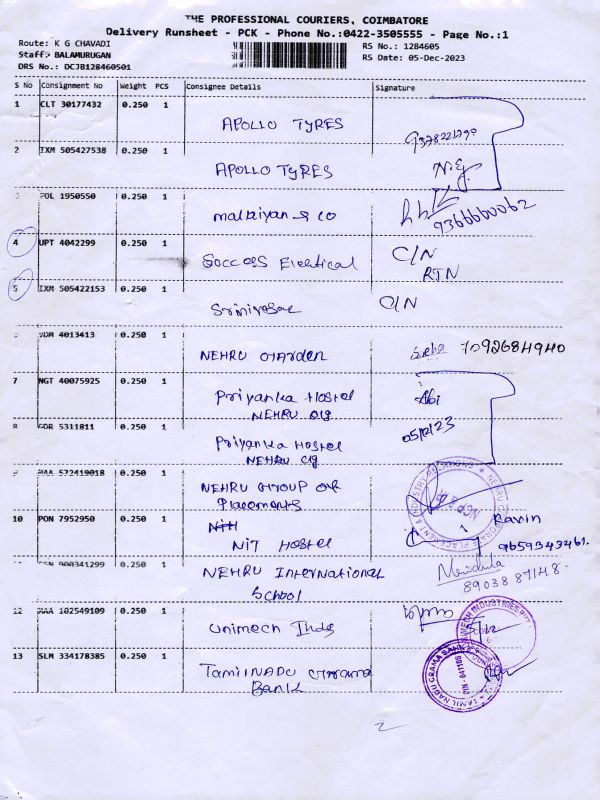 THE PROFESSIONAL COURIERS, COIMBATORE
Delivery Runsheet - PCK - Phone No.:0422-3505555 - Page No.:1
Route: K G CHAVADI
RS No.: 1284605
Staff: BALAMURUGAN
RS Date: 05-Dec-2023
DRS No.: DCJB128460501
S No Consignment No Weight PCS Consignee Details Signature
1 CLT 30177432 0.250 1
APOLLO TYRES
2 IXM 505427538 0.250 1
APOLLO TYRES
N.G.
3 POL 1950550 0.250 1
Mallaiyan & co
9366660062
4 UPT 4042299 0.250 1
C/N
Soccess Electical
RTN
5 IXM 505422153 0.250 1
O/N
Srinivasan
VDM 4013413 0.250 1
NEHRU Garden
7092684940
7 NGT 40075925 0.250 1
Priyanka Hostel
Abi
NEHRU clg
8 COR 5311811 0.250 1
05/12/23
Priyanka Hostel
NEHRU clg
MAA 572419018 0.250 1
NEHRU Group of
Placements
10 PON 7952950 0.250 1
NIT Hostel
Ravin
9659343461.
000341299 0.250 1
NEHRU International
School
Mridula
8903887148.
12 MAA 102549109 0.250 1
Unimech Inds
13 SLM 334178385 0.250 1
TamilNADU Grama
Bank
TAMIL NADU GRAMA BANK
PIN - 641105